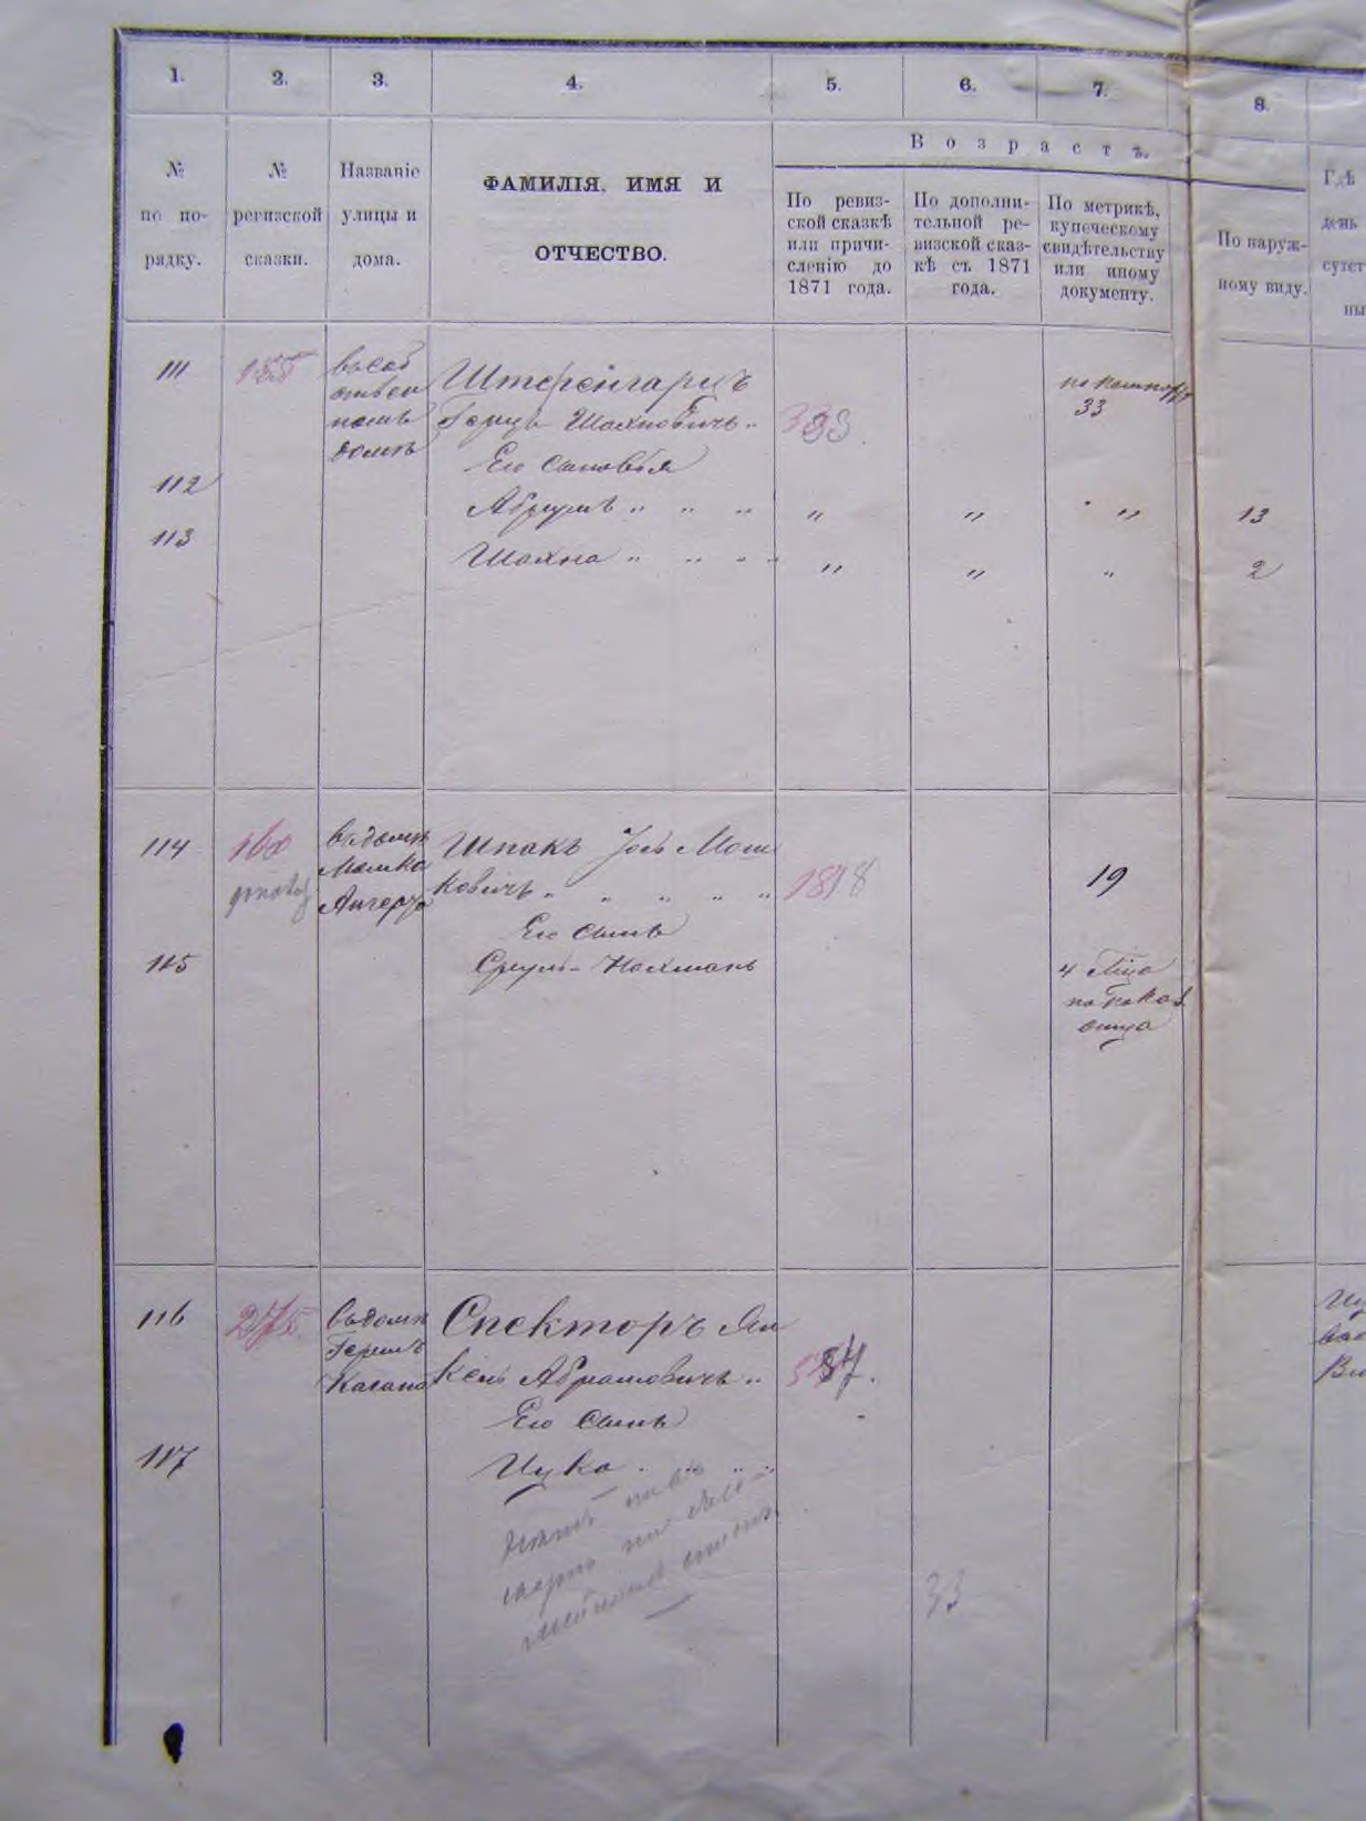 1. 2. 3. 4. 5. 6. 7. 8.
Возрастъ.
№ по по-рядку.
№ ревизской сказки.
Названіе улицы и дома.
ФАМИЛІЯ, ИМЯ И
ОТЧЕСТВО.
По ревиз-
ской сказкѣ
или причи-
сленію до
1871 года.
По дополни-
тельной ре-
визской сказ-
кѣ съ 1871
года.
По метрикѣ,
купеческому
свидѣтельству
или иному
документу.
По наруж-
ному виду.
Гдѣ
день
сутст
ны
111 155
въ соб
ствен
номъ
домѣ
Герцъ Шахновичъ 33
33
Его сыновья
112 Абрумъ " " " " " " 13
113 Шахна " " " " " " 2
114 160
въ домѣ
Мошка
Шпакъ Іось Мош
ковичъ " " " " " 1818 19
Его сынъ
115 Сруль-Нахманъ 4
по показ.
отца
116 275
въ домѣ
Гершъ
Кагана
Спекторъ Ян
кель Абрамовичъ " 57.
Его сынъ
117 Ицко " " "
33